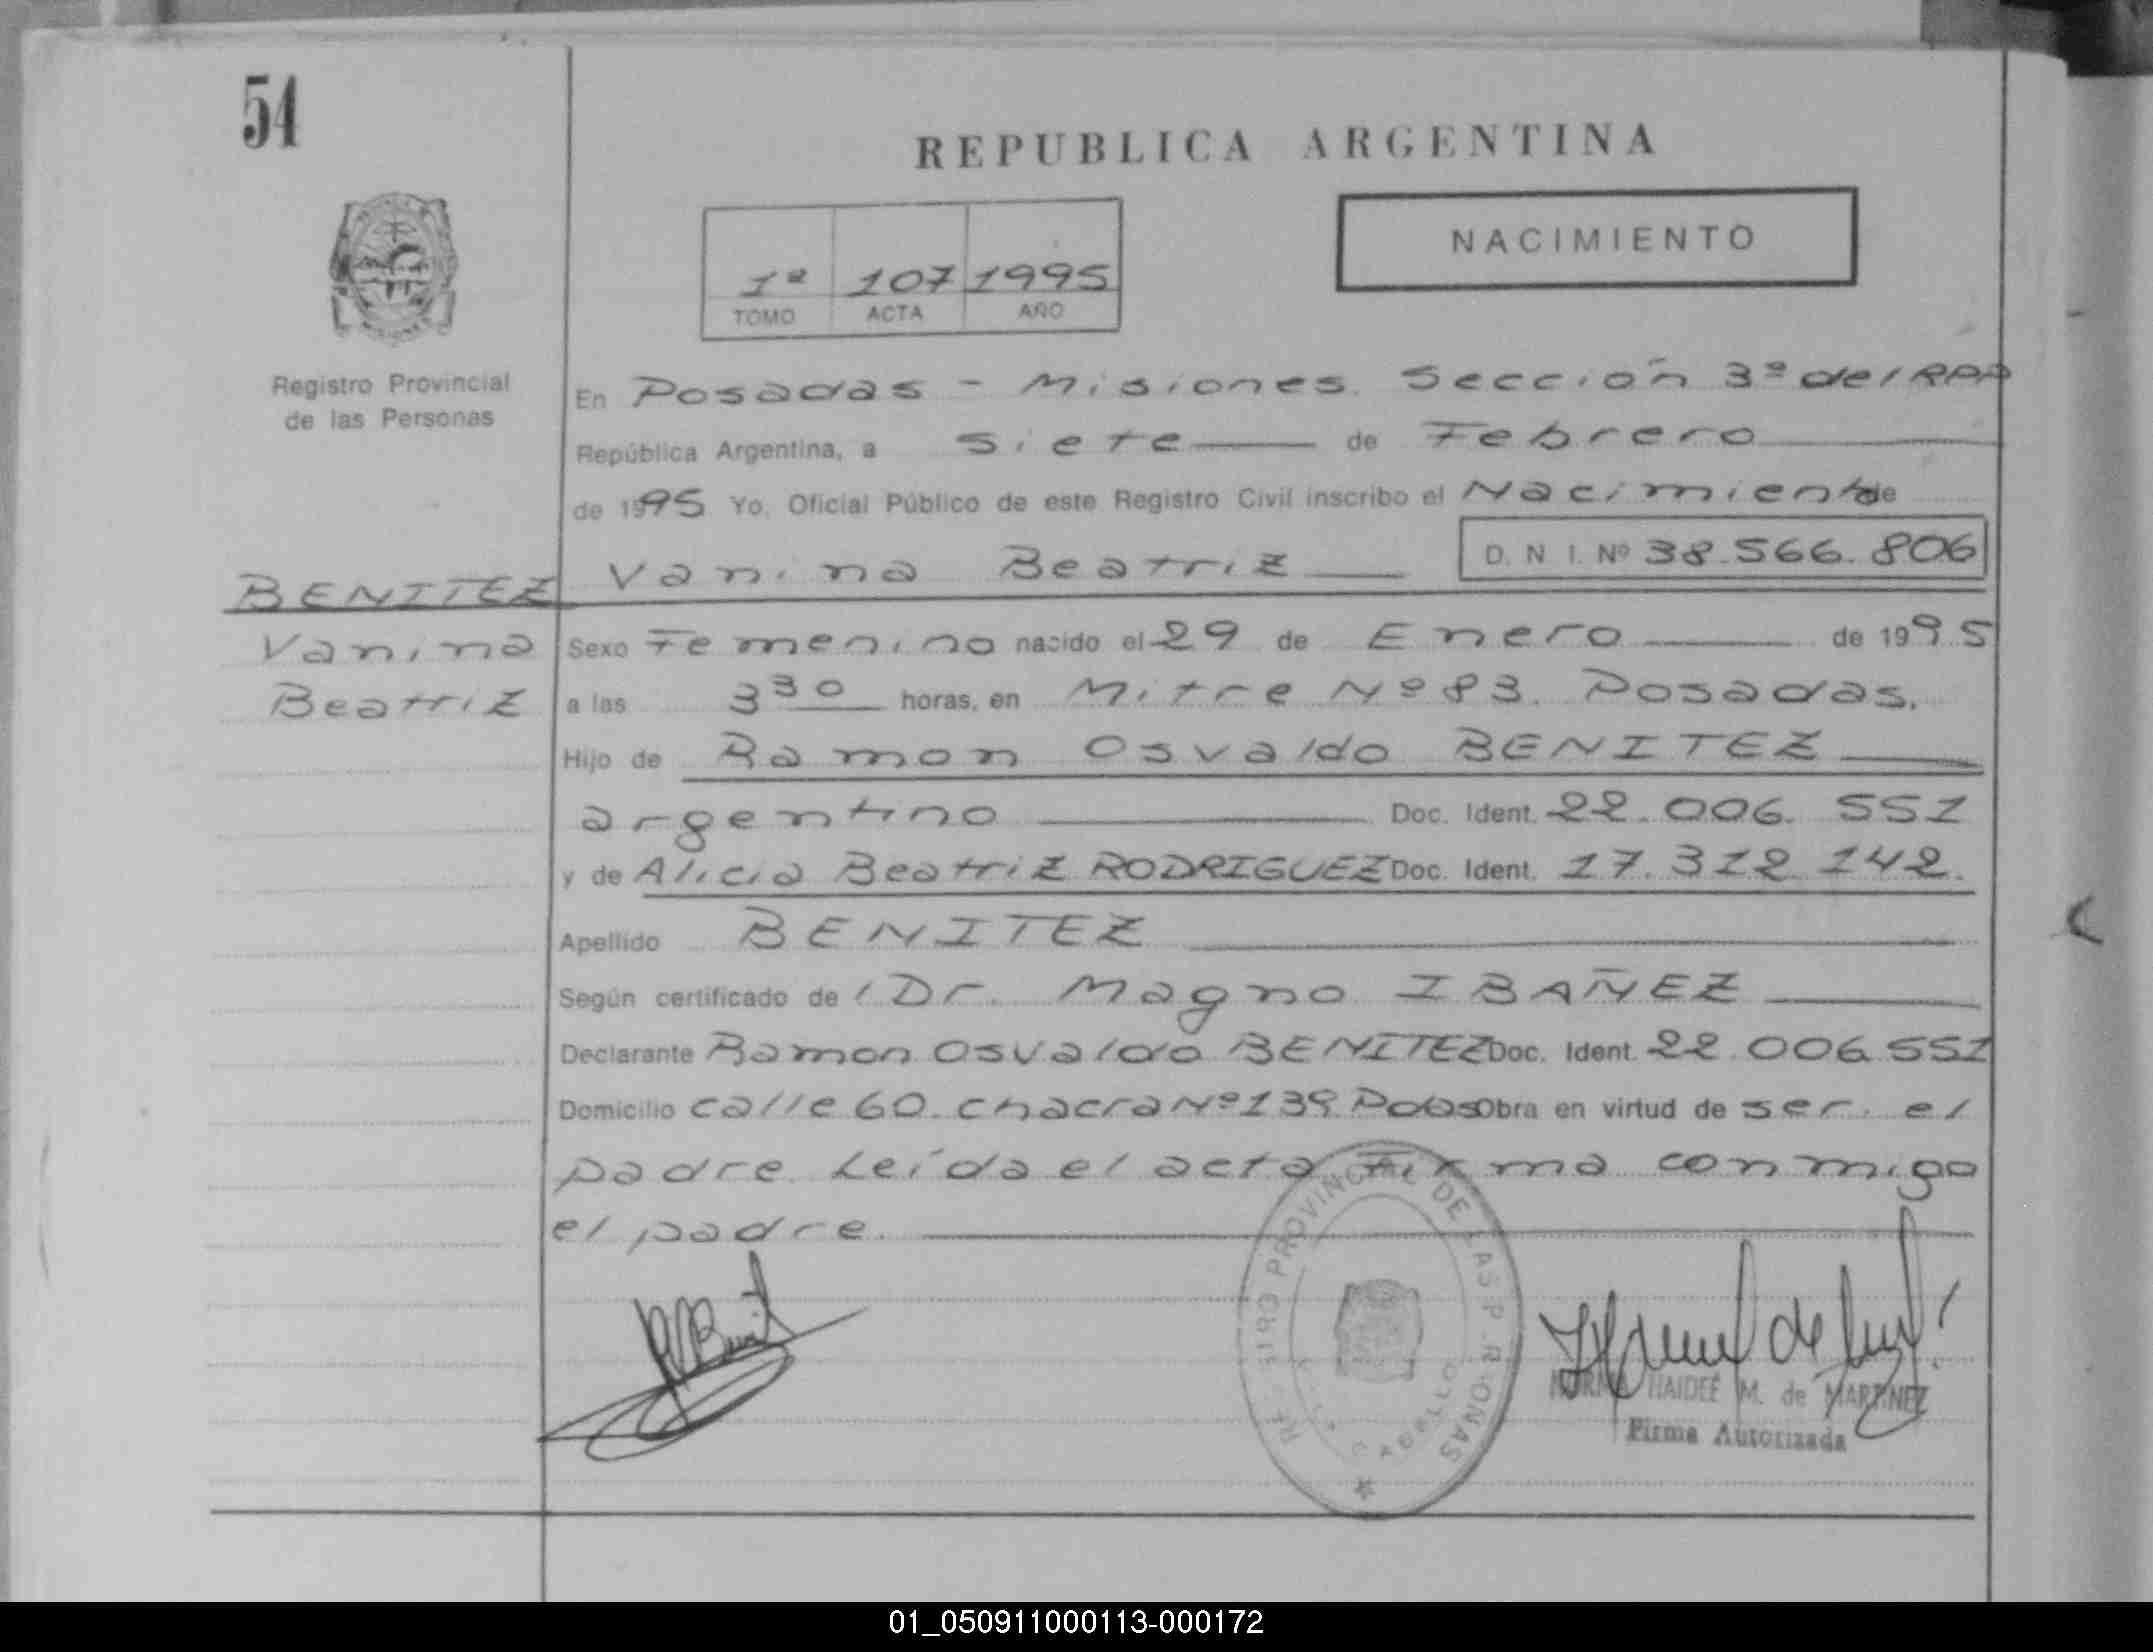 54
REPUBLICA ARGENTINA
NACIMIENTO
1º 107 1995
TOMO ACTA AÑO
Registro Provincial
de las Personas
En Posadas - Misiones. Sección 3º del RPP
República Argentina, a siete de Febrero
de 1995 Yo, Oficial Público de este Registro Civil inscribo el Nacimiento de
Vanina Beatriz D. N. I. Nº 38.566.806
BENITEZ
Vanina
Beatriz
Sexo Femenino nacido el 29 de Enero de 1995
a las 3 30 horas, en Mitre Nº 83. Posadas.
Hijo de Ramon Osvaldo BENITEZ
argentino Doc. Ident. 22.006.551
y de Alicia Beatriz RODRIGUEZ Doc. Ident. 17.312.142.
Apellido BENITEZ
Según certificado de Dr. Magno IBAÑEZ
Declarante Ramon Osvaldo BENITEZ Doc. Ident. 22.006.551
Domicilio calle 60. chacra Nº 139. Pdas Obra en virtud de ser el
padre. Leída el acta Firma conmigo
el padre.
REGISTRO PROVINCIAL DE LAS PERSONAS
NORMA HAIDEÉ M. de MARTINEZ
Firma Autorizada
01_050911000113-000172